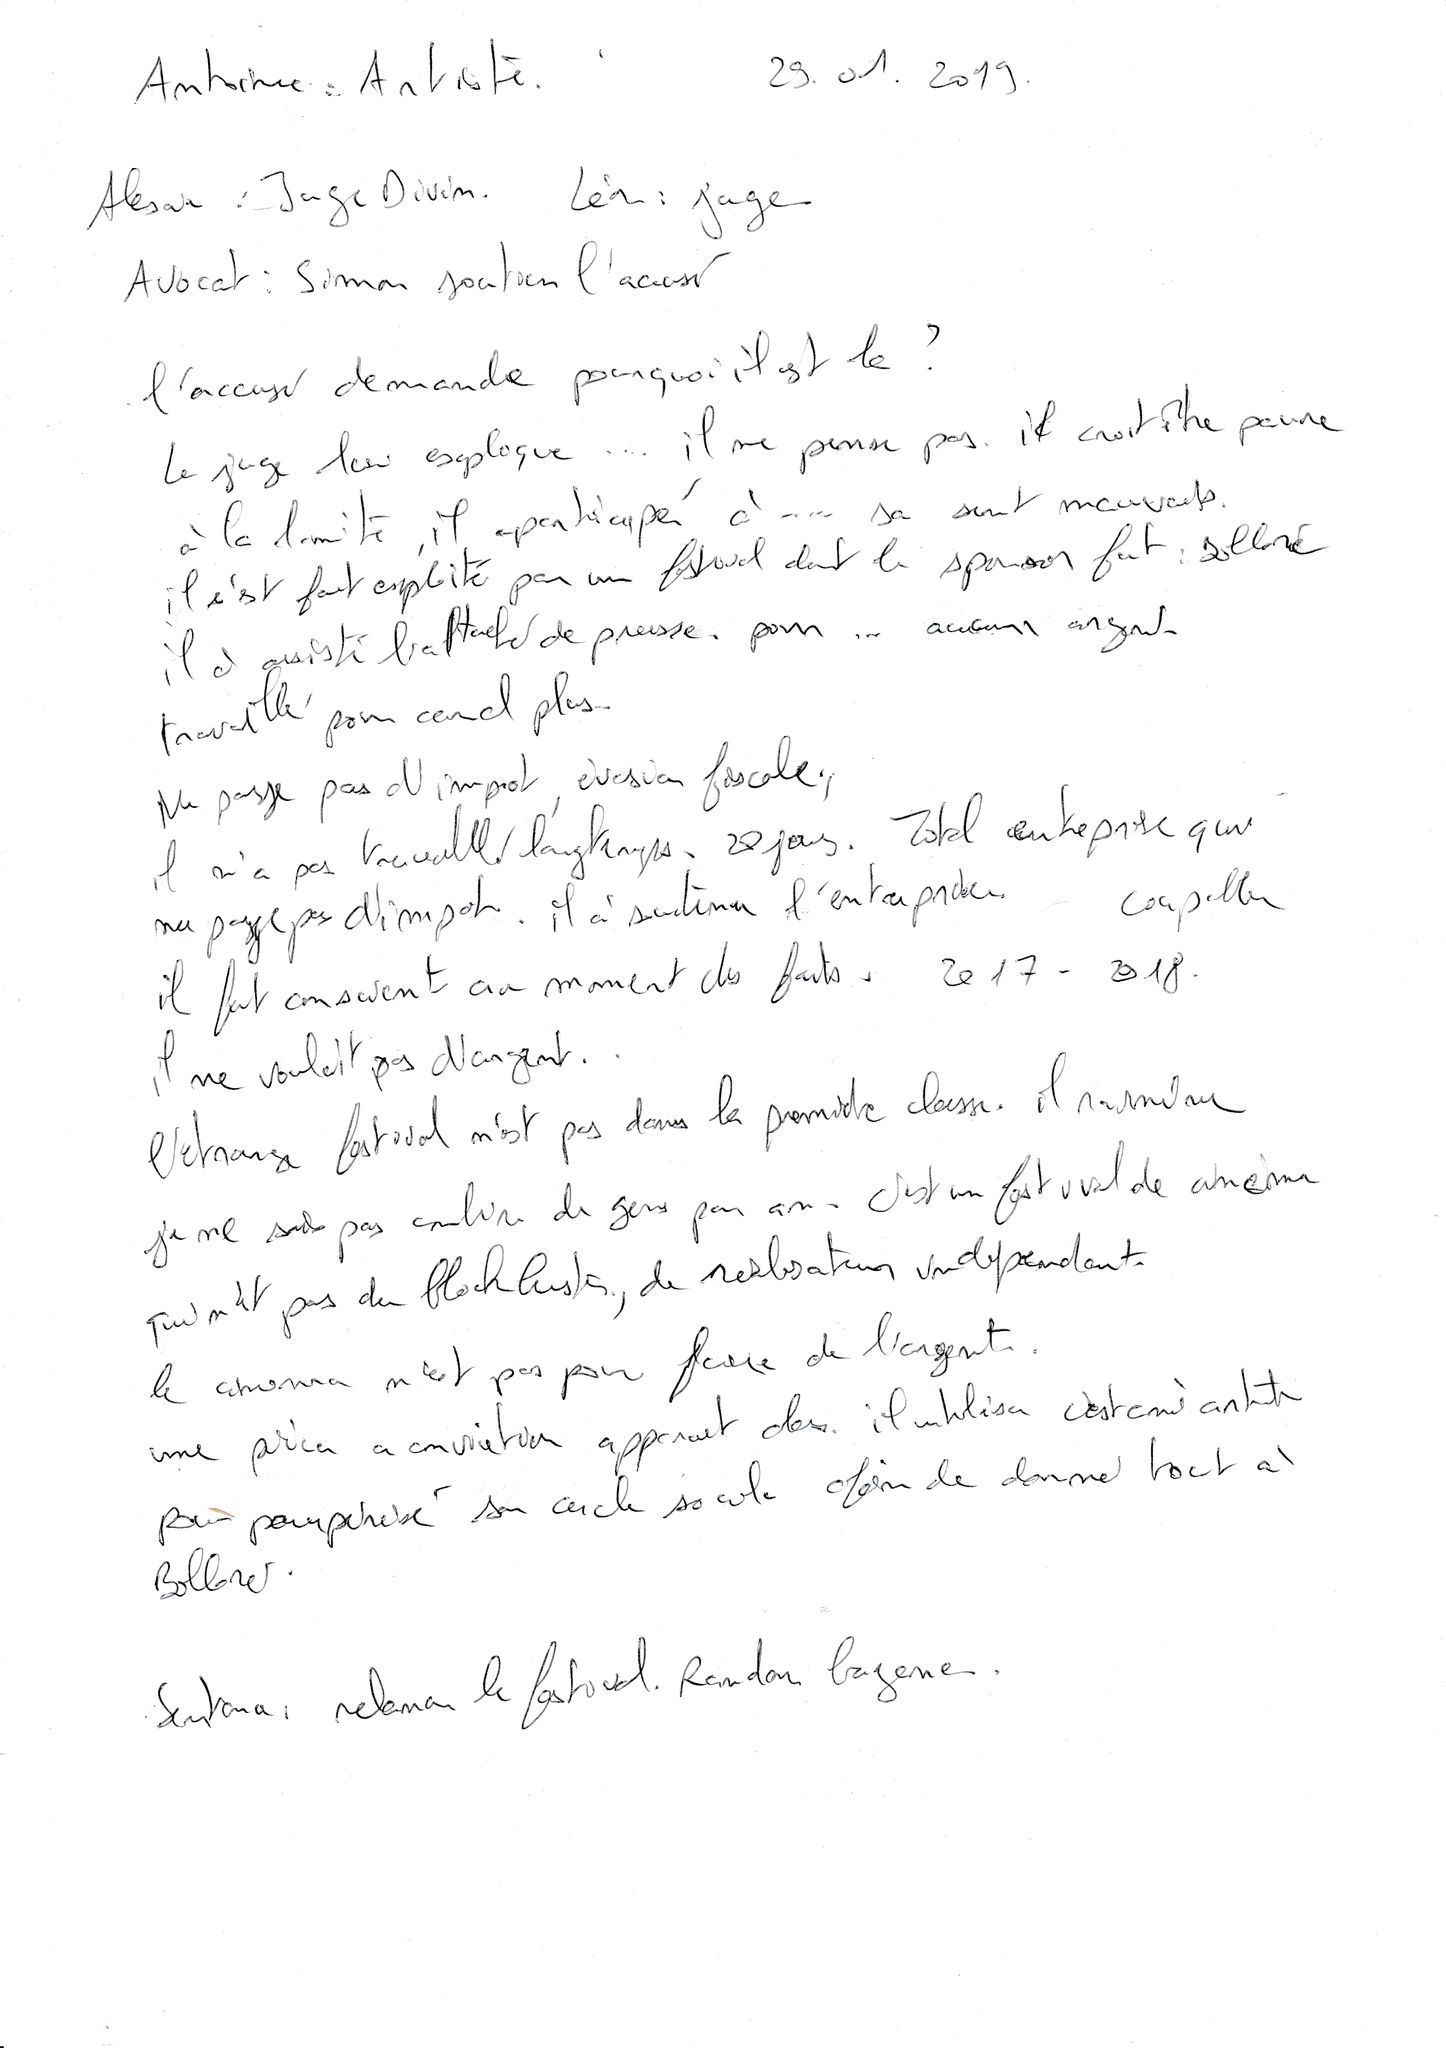 Antoine : Artiste. 29. 01. 2019.
: Juge Divin. Léon : juge
Avocat : Simon soutien l'accusé
l'accusé demande pourquoi il est la ?
Le juge leur explique ... il ne pense pas. il croit être pauvre
à la limite, il a participé à .... sa sont mauvais.
il s'est fait exploité par un festival dont le sponsor fut : Bolloré
il à assisté l'attaché de presse. pour ... aucun argent
travaillé pour canal plus.
Ne paye pas d'impot, évasion fiscale.,
il n'a pas travaillé longtemps. 20 jours. Total entreprise qui
ne paye pas d'impot. il à soutenu l'entreprise. coupable
il fut conscient au moment des faits. 2017 - 2018.
il ne voulait pas d'argent.
L'etrange festival n'est pas dans la première classe. il
je ne sais pas combien de gens par an. c'est un festival de cinema
qui n'est pas du blockbuster, de réalisateur independant.
le cinema n'est pas pour faire de l'argent.
une pièce a conviction apparait dos. il utilisa artiste
pour son cercle sociale afin de donné tout à
Bolloré.
le festival. Random bagerre.